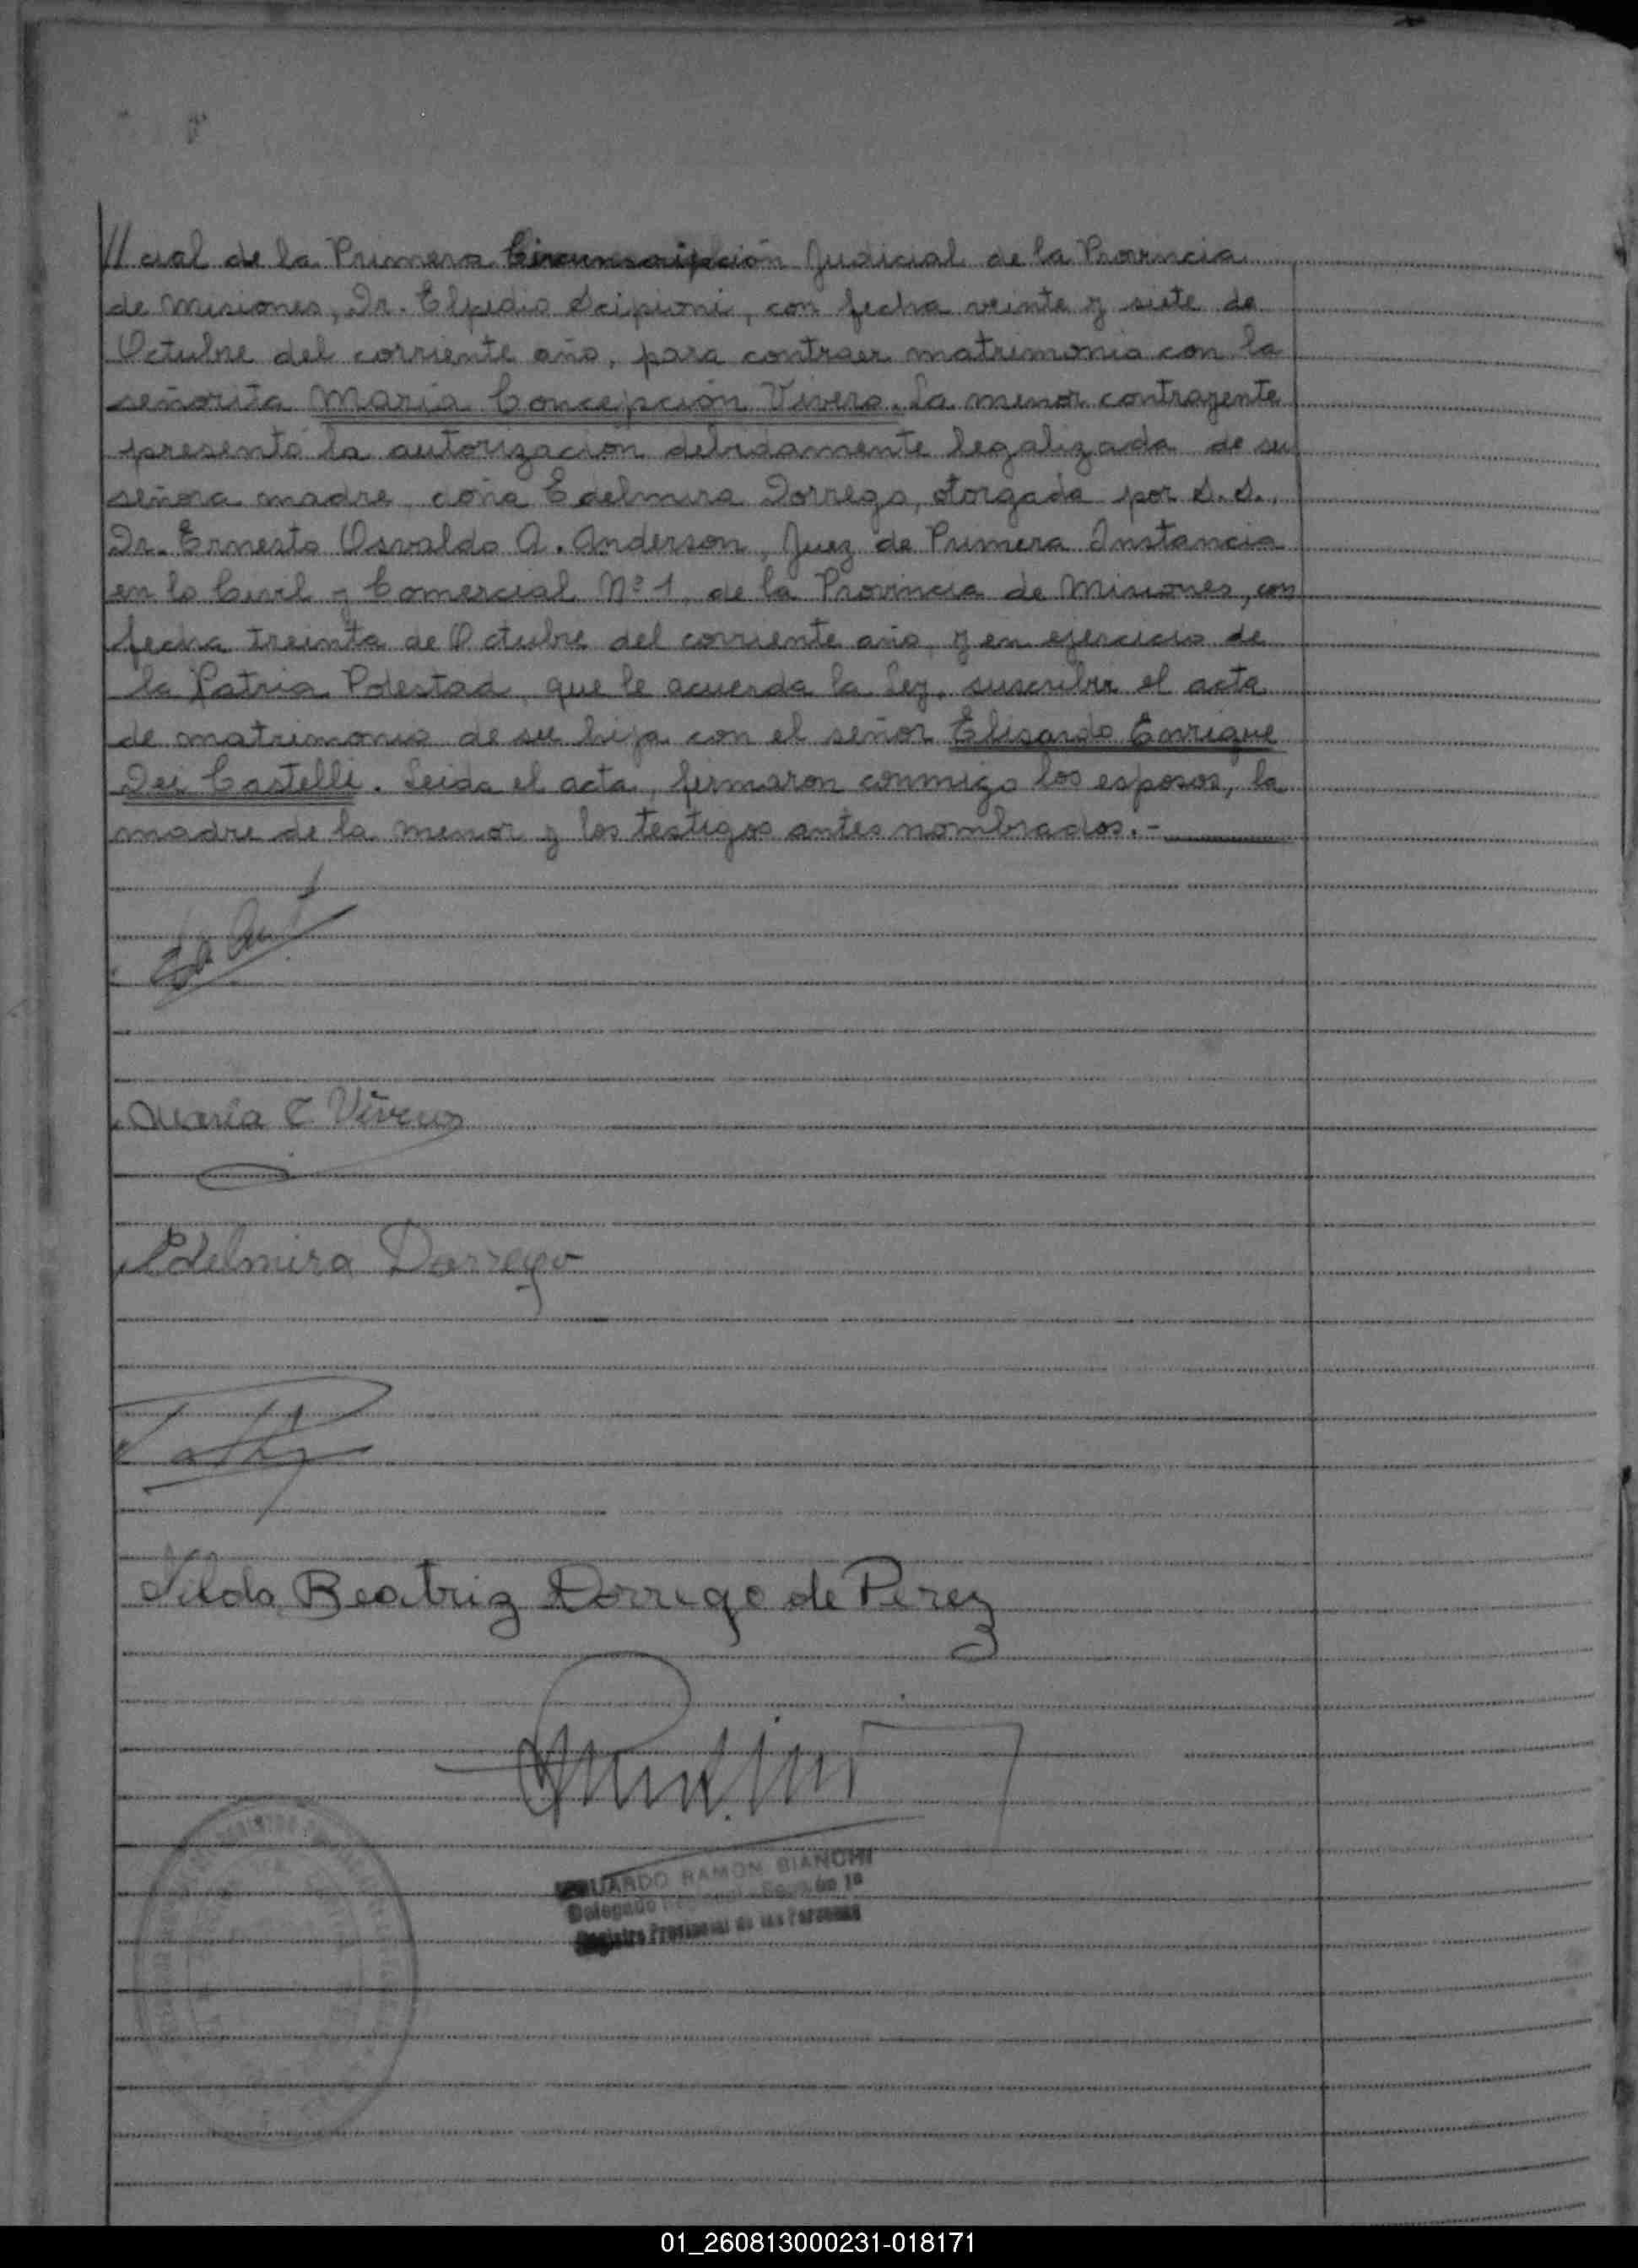 // cial de la Primera Circunscripción Judicial de la Provincia
de Misiones, Dr. Elpidio Scipioni, con fecha veinte y siete de
Octubre del corriente año, para contraer matrimonio con la
señorita Maria Concepción Vivero. La menor contrayente
presentó la autorización debidamente legalizada de su
señora madre, doña Edelmira Dorrego, otorgada por S.S.,
Dr. Ernesto Osvaldo A. Anderson, Juez de Primera Instancia
en lo Civil y Comercial Nº 1, de la Provincia de Misiones, con
fecha treinta de Octubre del corriente año, y en ejercicio de
la Patria Potestad, que le acuerda la Ley, suscribir el acta
de matrimonio de su hija con el señor Elisardo Enrique
Dei Castelli. Leida el acta, firmaron conmigo los esposos, la
madre de la menor y los testigos antes nombrados.-
Maria C. Vivero
Edelmira Dorrego
Nilda Beatriz Dorrego de Perez
EDUARDO RAMON BIANCHI
Delegado
Registro Provincial de las Personas
01_260813000231-018171